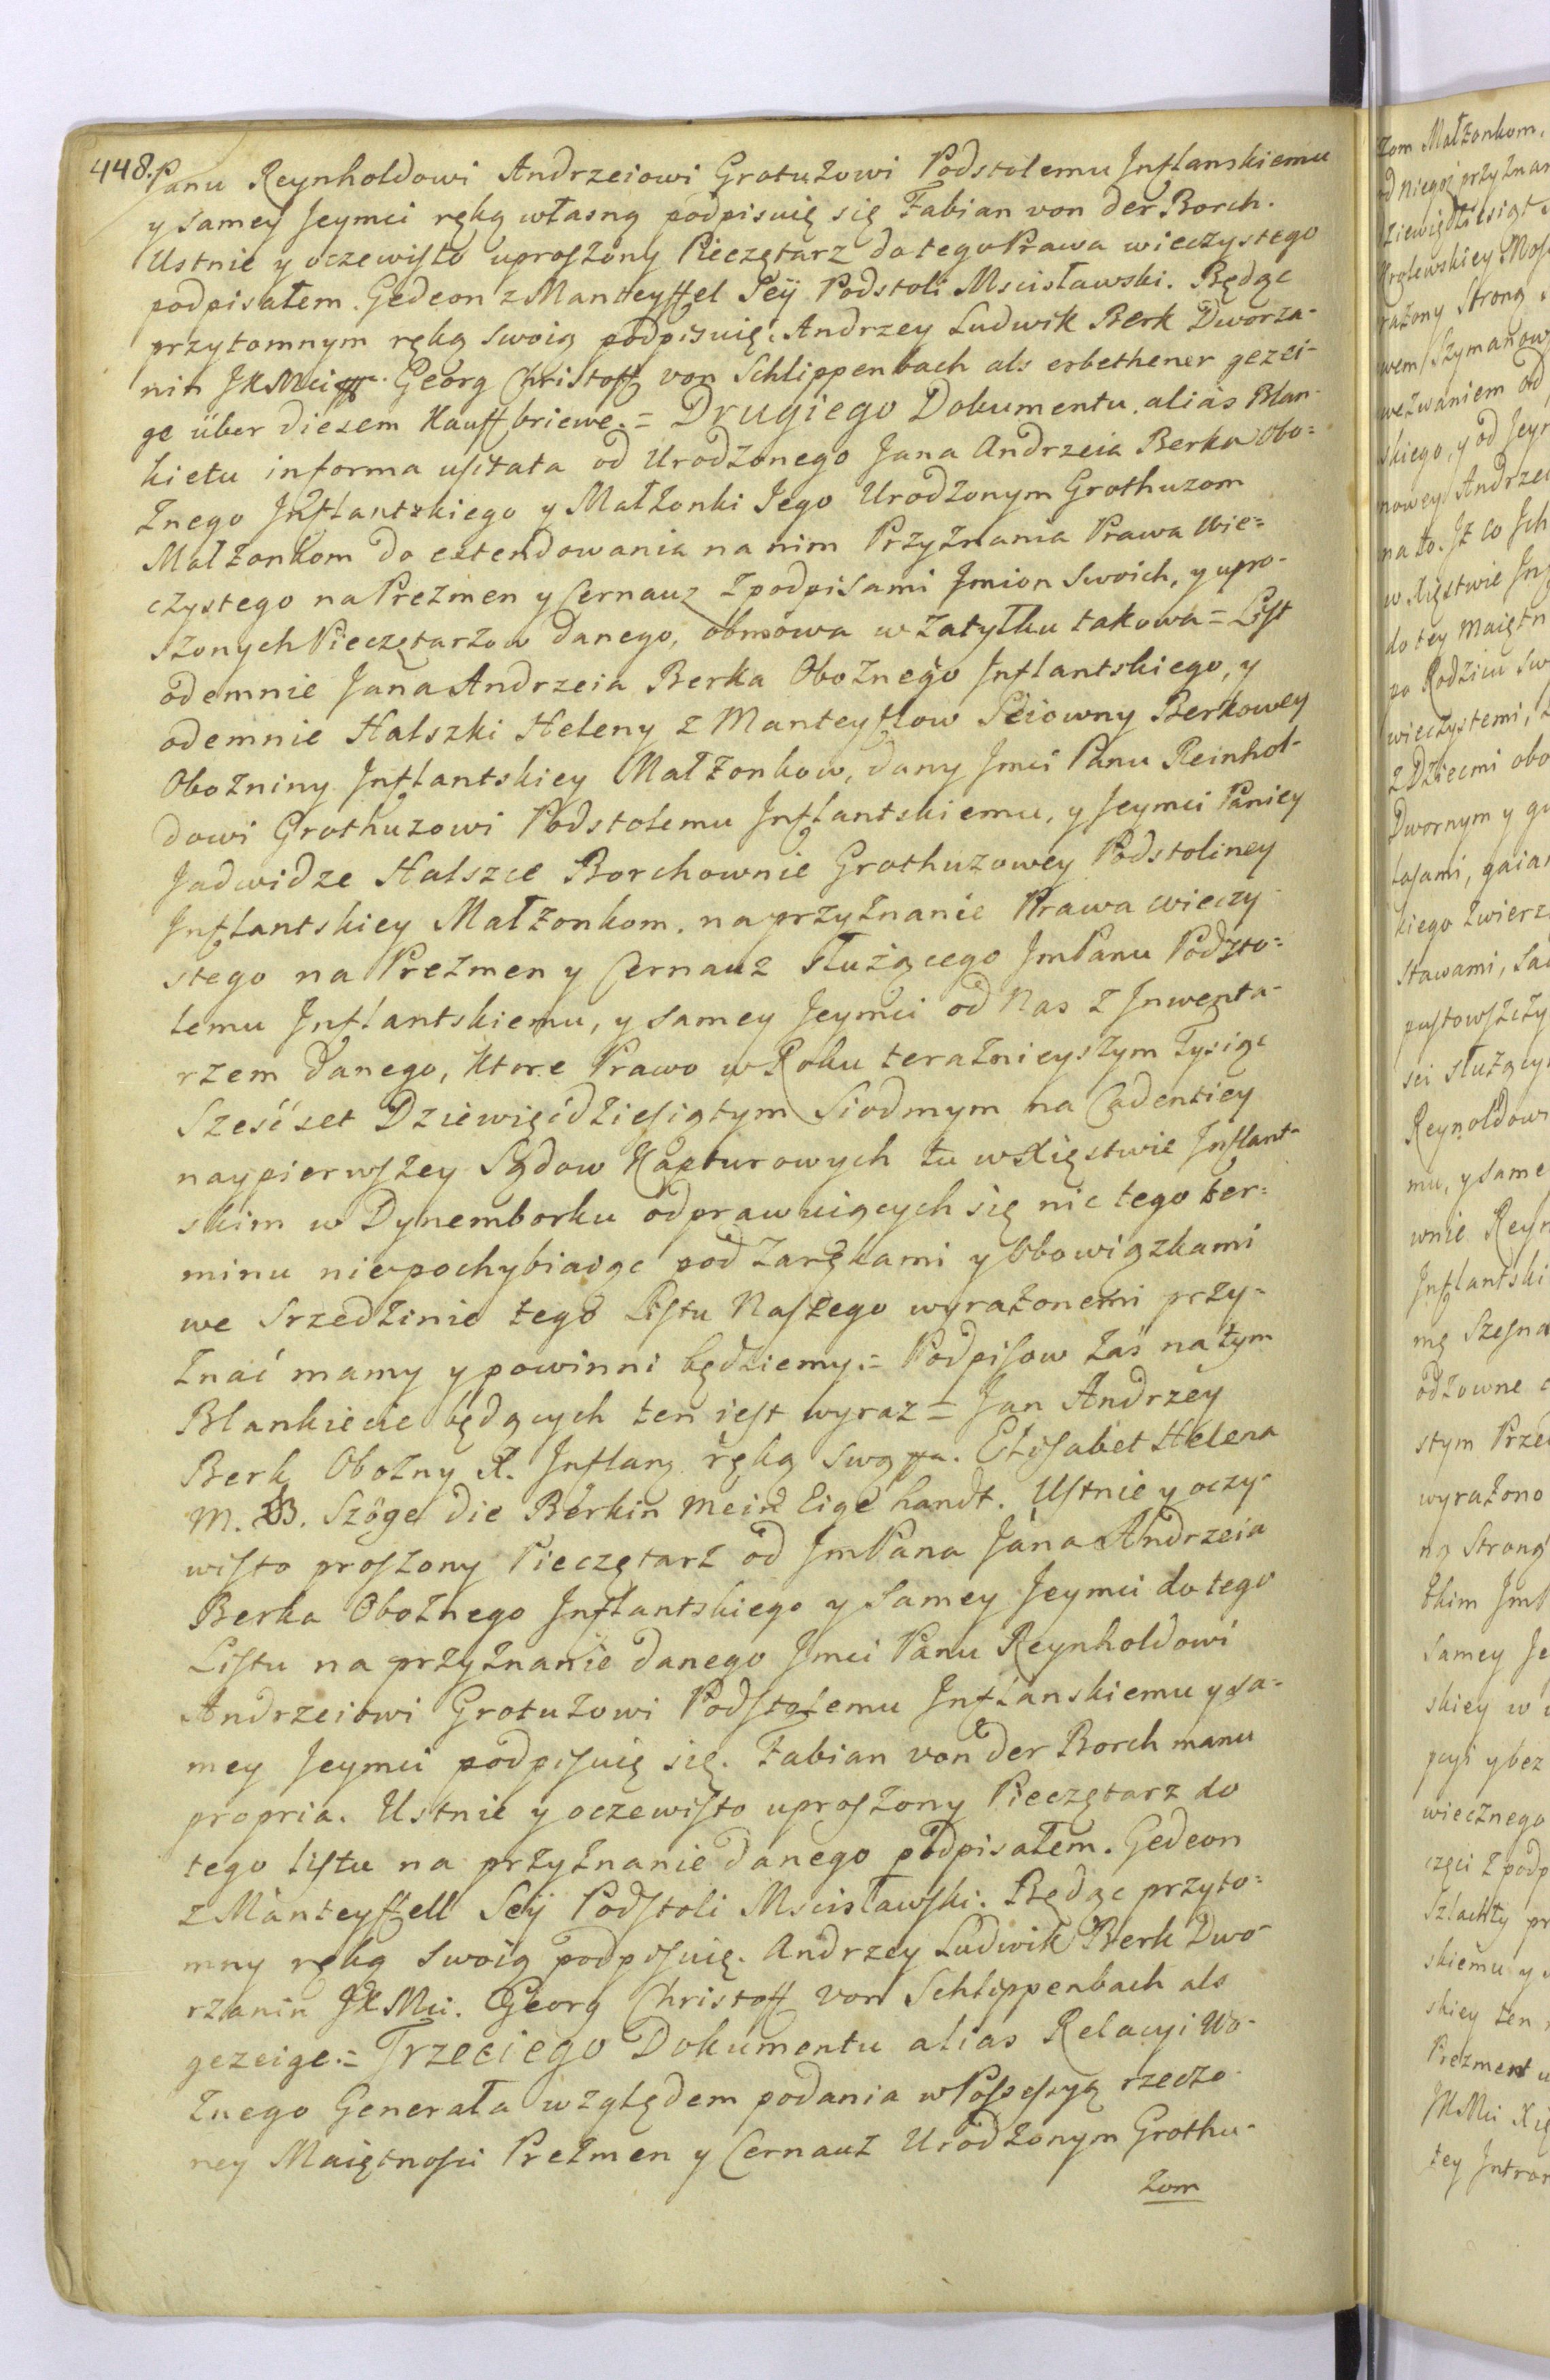 448. Panu Reynholdowi Andrzeiowi Grotużowi Podstolemu Inflanskiemu
y samey Jeymci ręką własną podpisuię się Fabian von der Borch.
Ustnie y oczewisto uproszony Pieczętarz do tego Prawa wieczystego
podpisałem. Gedeon z Manteyffel Sey Podstoli Mscisławski. Będąc
przytomnym ręką swoią podpisuię. Andrzey Ludwik Berk Dworza-
nin JKMci Georg Christoff von Schlippenbach als erbethener gezei-
ge über diesem Kauffbriewe.= Drugiego Dokumentu alias Blan-
kietu informa usitata od Urodzonego Jana Andrzeia Berka Obo=
żnego Inflantskiego y Małżonki Jego Urodzonym Grothuzom
Małżonkom do extendowania na nim Przyznania Prawa Wie=
czystego na Preżmen y Cernauz z podpisami Jmion swoich, y upro-
szonych Pieczętarzow danego, obmowa w zatyłku takowa = List
odemnie Jana Andrzeia Berka Obożnego Inflantskiego, y
odemnie Halszki Heleny z Manteyflow Seiowny Berkowey
Obożniny Inflantskiey Małżonkow, dany Jmci Panu Reinhol-
dowi Grothuzowi Podstolemu Inflantskiemu, y Jeymci Paniey
Jadwidze Halszce Borchownie Grothuzowey Podstoliney
Inflantskiey Małżonkom. na przyznanie Prawa wieczy-
stego na Preżmen y Cernauz służącego JmPanu Podsto=
lemu Inflantskiemu, y samey Jeymci od Nas z Inwenta-
rzem danego, Ktore Prawo w Roku teraznieyszym Tysiąc
Sześćset Dziewięćdziesiątym Siodmym na Cadentiey
naypierwszey Sądow Kapturowych tu w Xięstwie Inflant-
skim w Dynemborku odprawuiących się nic tego ter=
minu niepochybiaiąc pod zarękami y Obowiązkami
we Srzedzinie tego Listu Naszego wyrażonemi przy=
znać mamy y powinni będziemy.= Podpisow zaś na tym
Blankiecie będących ten iest wyraz = Jan Andrzey
Berk Obożny X. Inflan. ręką swą. Elisabet Helena
M. B. Szöge die Berkin mein Eige handt. Ustnie y oczy-
wisto proszony Pieczętarz od JmPana Jana Andrzeia
Berka Obożnego Inflantskiego y Samey Jeymci do tego
Listu na przyznanie danego Jmci Panu Reynholdowi
Andrzeiowi Grotużowi Podstolemu Inflanskiemu y sa=
mey Jeymci podpisuię się. Fabian von der Borch manu
propria. Ustnie y oczewisto uproszony Pieczętarz do
tego listu na przyznanie danego podpisałem. Gedeon
z Manteyffell Sey Podstoli Mscisławski. Będąc przyto=
mny ręką swoią podpisuię. Andrzey Ludwik Berk Dwo-
rzanin JKMci. Georg Christoff von Schlippenbach als
gezeige.= Trzeciego Dokumentu alias Relacyi Wo-
żnego Generała względem podania w Possessyą rzeczo-
ney Maiętności Preżmen y Cernauz Urodzonym Grothu-
zom